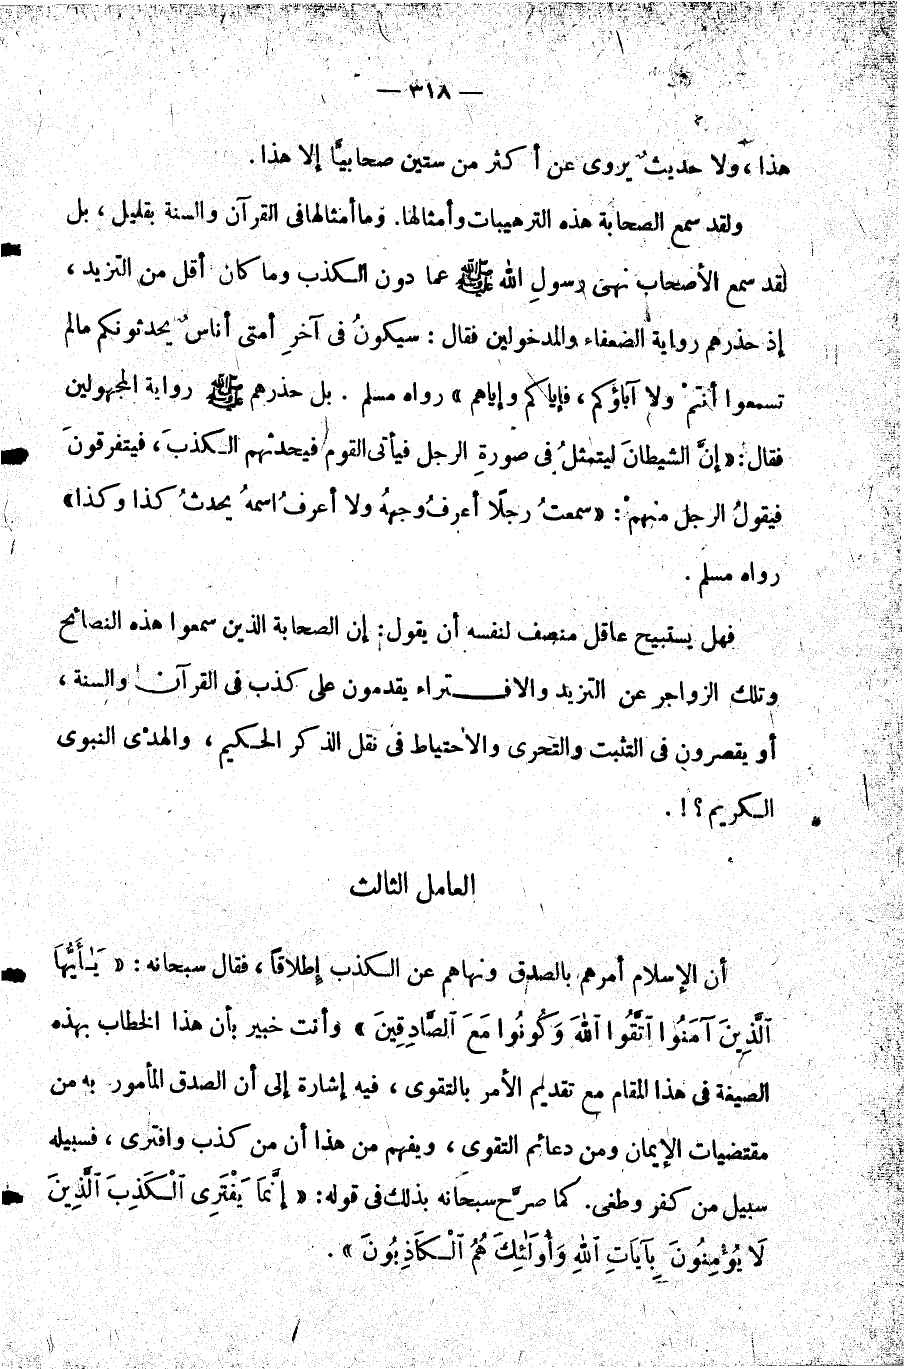 — ٣١٨ —
هذا، ولا حديثٌ يروى عن أكثر من ستين صحابيًّا إلا هذا.
ولقد سمع الصحابة هذه الترهيبات وأمثالها. وما أمثالها فى القرآن والسنة بقليل، بل
لقد سمع الأصحاب نهى رسولِ الله ﷺ عما دون الكذب وما كان أقل من التزيد،
إذ حذرهم رواية الضعفاء والمدخولين فقال: سيكونُ فى آخرِ أمتى أناسٌ يحدثونكم مالم
تسمعوا أنتمْ ولا آباؤكم، فإياكم وإياهم » رواه مسلم . بل حذرهم ﷺ رواية المجهولين
فقال: « إنَّ الشيطانَ ليتمثلُ فى صورةِ الرجل فيأتى القوم فيحدثهم الكذبَ، فيتفرقونَ
فيقولُ الرجل منهمْ: «سمعتُ رجلًا أعرفُ وجههُ ولا أعرفُ اسمهُ يحدثُ كذا وكذا»
رواه مسلم .
فهل يستبيح عاقل منصف لنفسه أن يقول: إن الصحابة الذين سمعوا هذه النصائح
وتلك الزواجر عن التزيد والافتراء يقدمون على كذب فى القرآن والسنة،
أو يقصرون فى التثبت والتحرى والاحتياط فى نقل الذكر الحكيم، والهدى النبوى
الكريم؟! .
العامل الثالث
أن الإسلام أمرهم بالصدق ونهاهم عن الكذب إطلاقاً، فقال سبحانه: « يَـٰأَيُّهَا
ٱلَّذِينَ آمَنُوا ٱتَّقُوا ٱللهَ وَكُونُوا مَعَ ٱلصَّادِقِينَ » وأنت خبير بأن هذا الخطاب بهذه
الصيغة فى هذا المقام مع تقديم الأمر بالتقوى، فيه إشارة إلى أن الصدق المأمور به من
مقتضيات الإيمان ومن دعائم التقوى، ويفهم من هذا أن من كذب وافترى، فسبيله
سبيل من كفر وطغى. كما صرَّح سبحانه بذلك فى قوله: « إِنَّمَا يَفْتَرِى ٱلْكَذِبَ ٱلَّذِينَ
لَا يُؤْمِنُونَ بِآيَاتِ ٱللهِ وَأُولَٰئِكَ هُمُ ٱلْكَاذِبُونَ » .